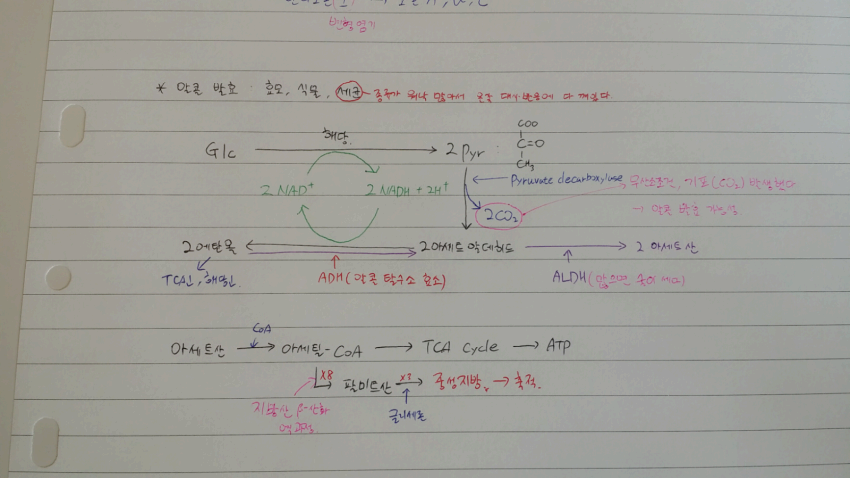 변형 엽기
* 알콜 발효 : 효모, 식물, 세균 - 종류가 워낙 많아서 온갖 대사반응에 다 껴있다.
Glc 해당 2 Pyr : COO C=O CH3
2 NAD+ 2 NADH + 2H+ Pyruvate decarboxylase, 무산소조건, 기포(CO2) 발생한다
2CO2 → 알콜 발효 가능성
2에탄올 2아세트알데히드 2 아세트산
TCA인, 해당인 ADH(알콜 탈수소 효소) ALDH(많으면 술이 세다)
CoA
아세트산 → 아세틸-CoA → TCA cycle → ATP
x8 팔미트산 x3 중성지방 → 축적.
지방산 β-산화 역과정 글리세롤